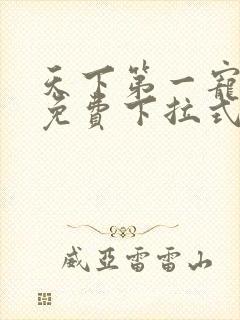 天下第一寵
免費下拉式
威亞雷雷山